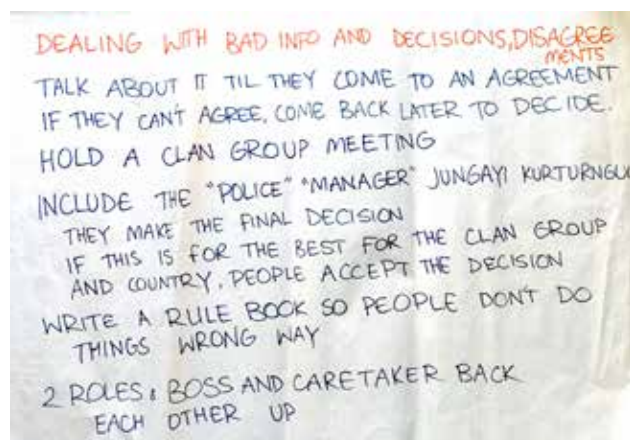 DEALING WITH BAD INFO AND DECISIONS, DISAGREE
MENTS
TALK ABOUT IT TIL THEY COME TO AN AGREEMENT
IF THEY CAN'T AGREE, COME BACK LATER TO DECIDE.
HOLD A CLAN GROUP MEETING
INCLUDE THE "POLICE" "MANAGER" JUNGAYI KURTURNGU
THEY MAKE THE FINAL DECISION
IF THIS IS FOR THE BEST FOR THE CLAN GROUP
AND COUNTRY, PEOPLE ACCEPT THE DECISION
WRITE A RULE BOOK SO PEOPLE DON'T DO
THINGS WRONG WAY
2 ROLES, BOSS AND CARETAKER BACK
EACH OTHER UP